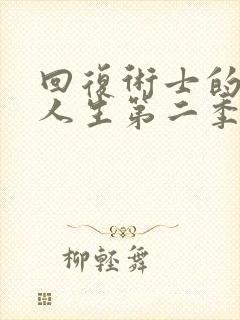 回復術士的
人生第二季
柳輕舞